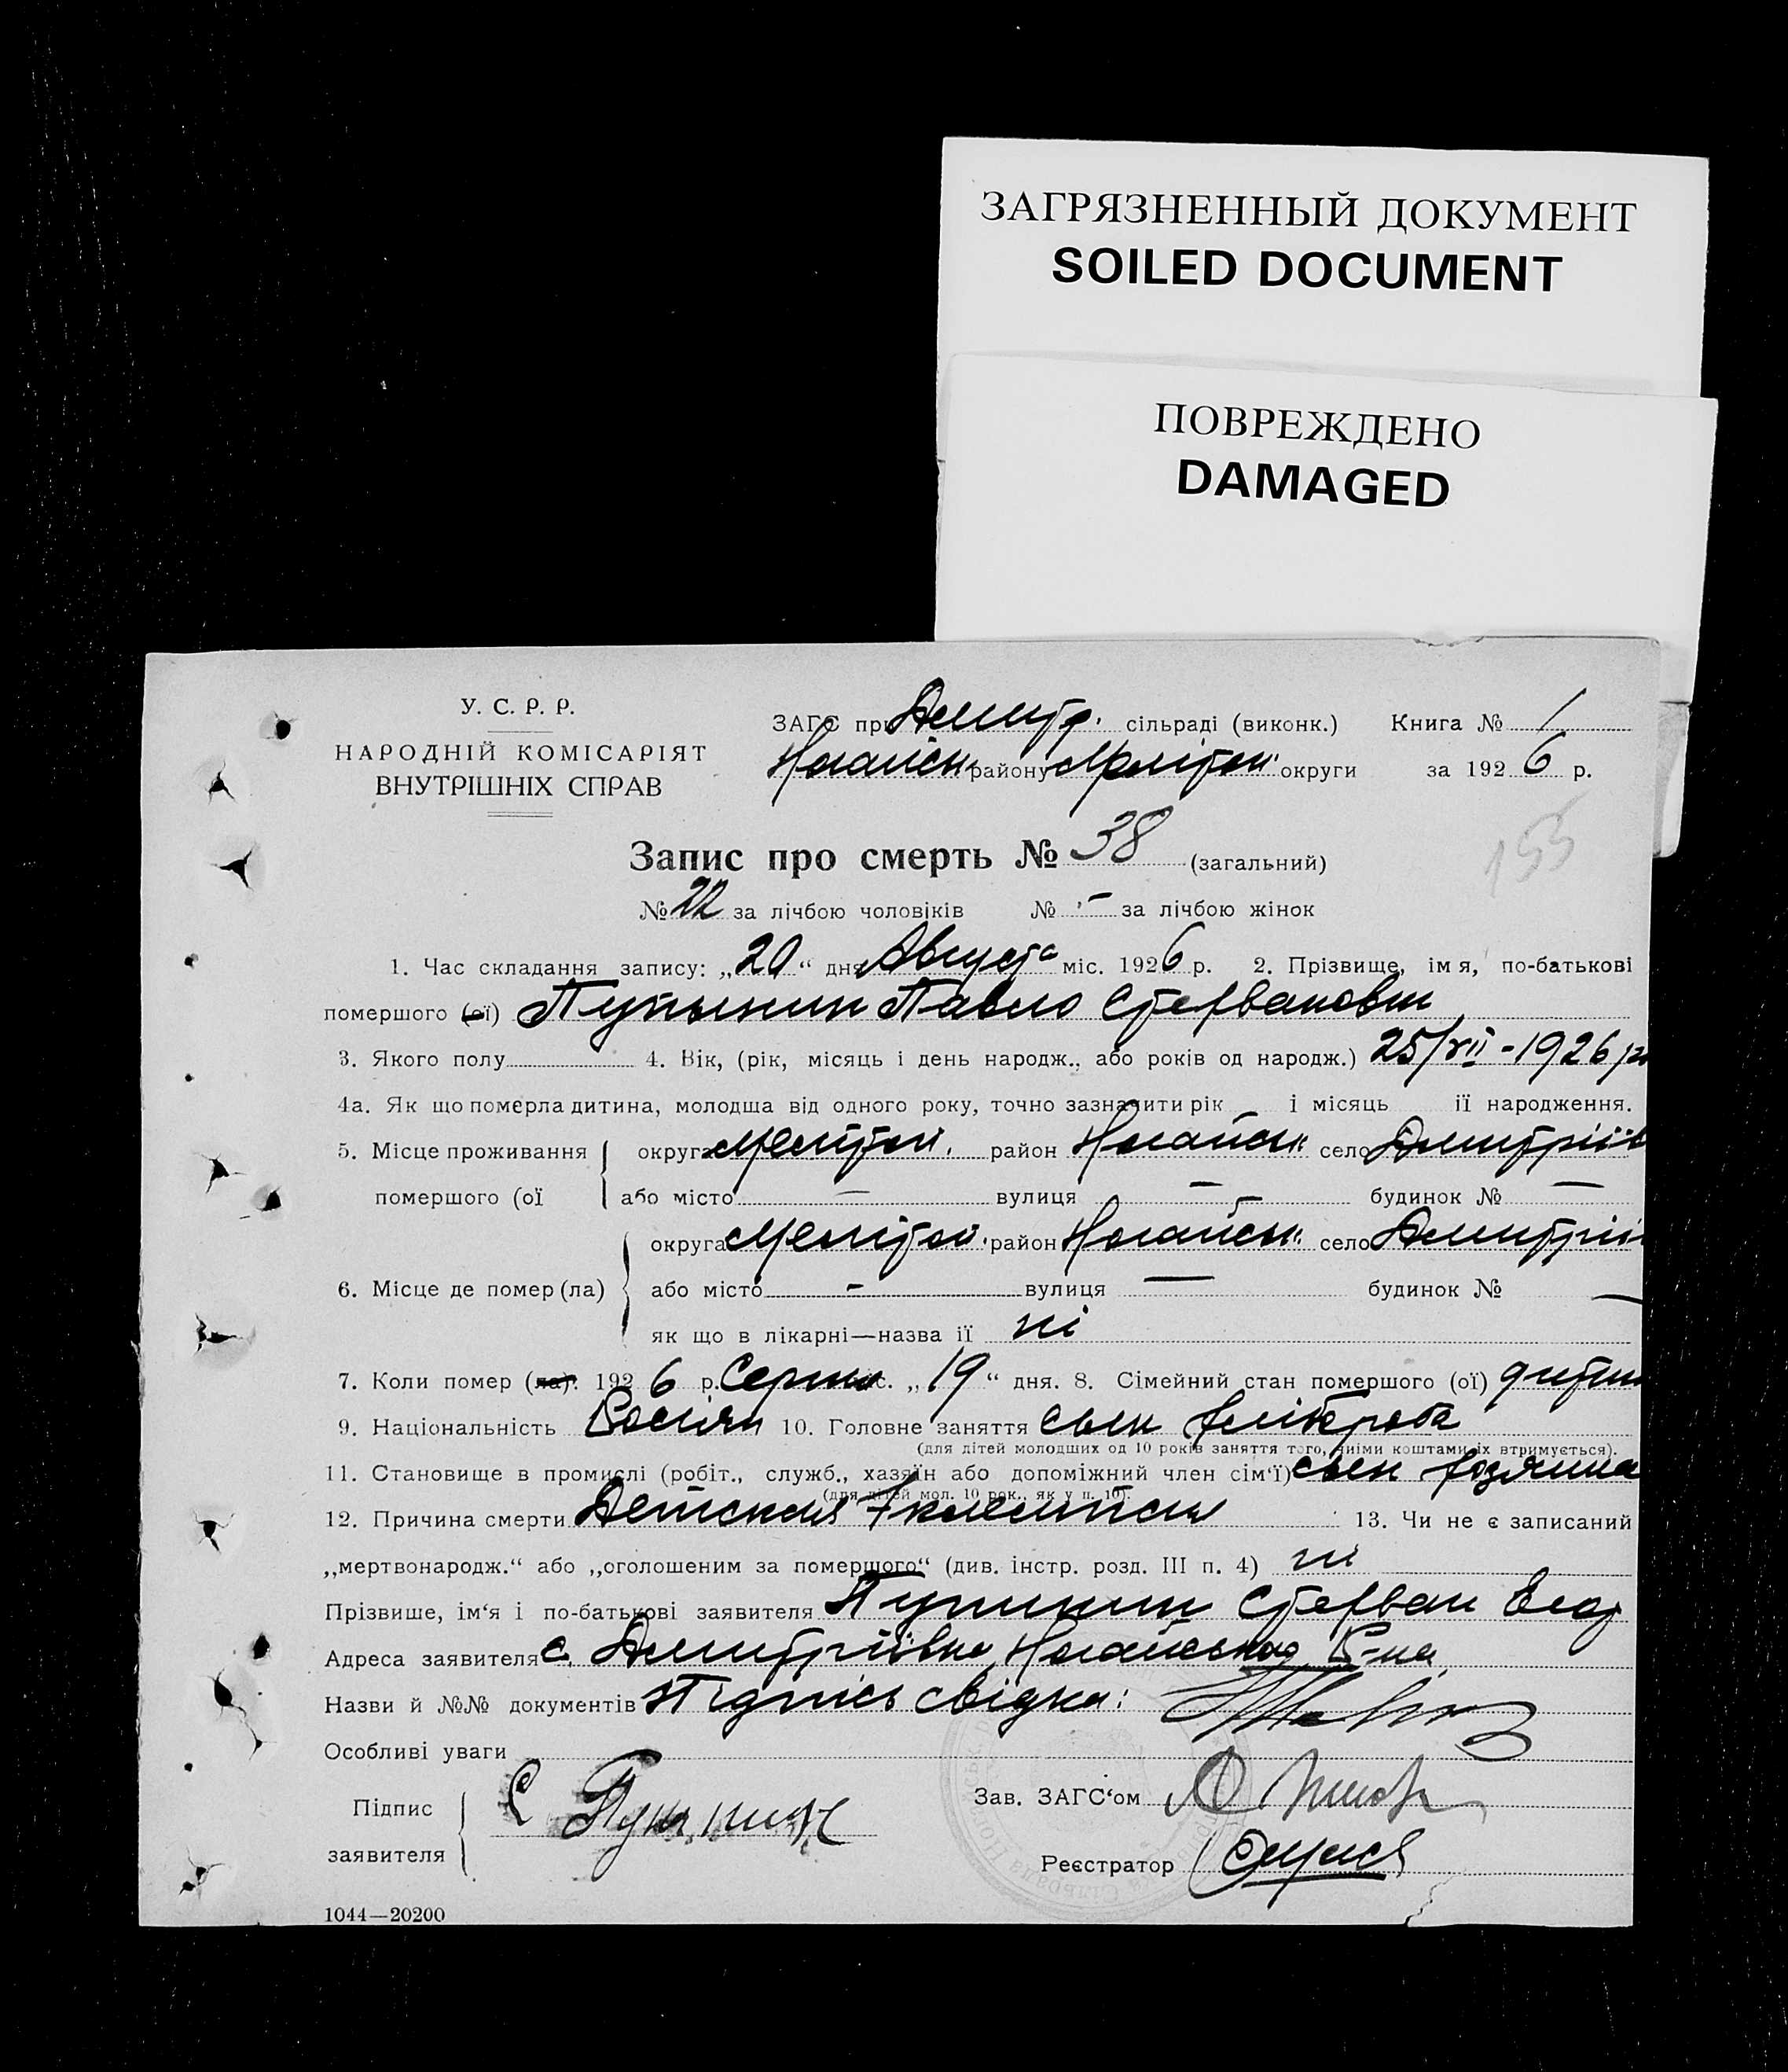 ЗАГРЯЗНЕННЫЙ ДОКУМЕНТ
SOILED DOCUMENT
ПОВРЕЖДЕНО
DAMAGED
У. С. Р. Р.
НАРОДНІЙ КОМІСАРІЯТ
ВНУТРІШНІХ СПРАВ
ЗАГС при Дмитр. сільраді (виконк.) Книга № 1
Ногайськ району Мелітоп. округи за 1926 р.
155
Запис про смерть № 38 (загальний)
№ 22 за лічбою чоловіків № - за лічбою жінок
1. Час складання запису: „20“ дня Августа міс. 1926 р. 2. Прізвище, імя, по-батькові
помершого (ої) Павло
3. Якого полу 4. Вік, (рік, місяць і день народж., або років од народж.) 25/VII - 1926 р
4а. Як що померла дитина, молодша від одного року, точно зазначити рік і місяць її народження.
5. Місце проживання округа Мелітоп. район Ногайськ село Дмитріїв
помершого (ої або місто — вулиця — будинок № —
округа Мелітоп. район Ногайськ. село Дмитрії
6. Місце де помер (ла) або місто - вулиця — будинок № —
як що в лікарні—назва її ні
7. Коли помер (ла). 1926 р. Серпня міс. „19“ дня. 8. Сімейний стан помершого (ої) дитин
9. Національність Росіян 10. Головне заняття сын хлібороба
(для літей молодших од 10 років заняття того, чиїми коштами їх втримується).
11. Становище в промислі (робіт., служб., хазяїн або допоміжний член сім‘ї) сын хозяина
(для дітей мол. 10 рок., як у п. 10).
12. Причина смерти Детская Эклемпсия 13. Чи не є записаний
„мертвонародж.“ або „оголошеним за померщого“ (див. інстр. розд. III п. 4) ні
Прізвише, ім‘я і по-батькові заявителя
Адреса заявителя с. Дмитріївка Ногайського Р-на
Назви й №№ документів Підпись свідка:
Особливі уваги
Підпис
заявителя
Зав. ЗАГС‘ом
Реєстратор
1044—20200